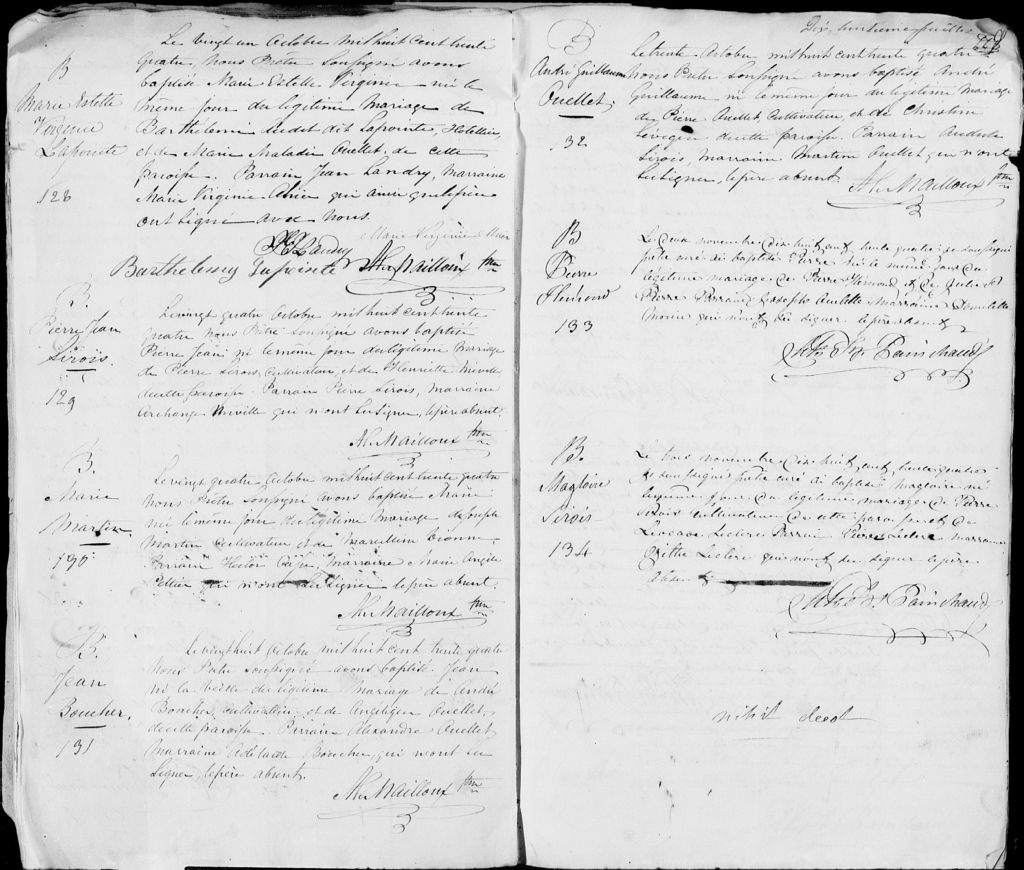 B
Marie Estelle
Virginie
Lapointe
128
Le vingt un Octobre mil huit cent trente
quatre, Nous Prêtre Soussigné avons
baptisé Marie Estelle Virginie née le
même jour du légitime mariage de
Barthelemi Audet dit Lapointe, Hotellier,
et de Marie Ouellet, de cette
paroisse. Parrain Jean Landry, Marraine
Marie Virginie qui ainsi que le père
ont signé avec nous.
Landry Marie Virginie
Barthelemy Lapointe Alx. Mailloux ptre
B.
Pierre Jean
Sirois.
129
Le vingt quatre Octobre mil huit cent trente
quatre nous Prêtre Soussigné avons baptisé
Pierre Jean né le même jour du légitime mariage
de Pierre Sirois, cultivateur, et de Henriette Miville
de cette paroisse. Parrain Pierre Sirois, Marraine
Archange Miville qui n'ont su signer, le père absent.
Alx. Mailloux ptre
B.
Marie
Martin
130
Le vingt quatre, Octobre mil huit cent trente quatre
Nous Prêtre Soussigné avons baptisé Marie
née le même jour du légitime mariage de Joseph
Martin cultivateur et de Marcelline Dionne.
Parrain Hector Marraine Marie Angèle
Pettier qui n'ont su signer le père absent.
Alx. Mailloux ptre
B.
Jean
Boucher.
131
Le vingt huit Octobre mil huit cent trente quatre
Nous Prêtre soussigné avons baptisé Jean
né la veille du légitime mariage de André
Boucher, cultivateur, et de Angélique Ouellet,
de cette paroisse. Parrain Alexandre Ouellet,
Marraine Adélaïde Boucher, qui n'ont su
Signer, le père absent.
Alx. Mailloux ptre
Dix huitième feuillet
B
André Guillaume
Ouellet.
132
Le trente Octobre mil huit cent trente quatre
Nous Prêtre Soussigné avons baptisé André
Guillaume né le même jour du légitime mariage
de Pierre Ouellet, cultivateur, et de Christine
Levêque de cette paroisse. Parrain
Sirois, Marraine Martine Ouellet qui n'ont
su signer, le père absent. Alx. Mailloux ptre
B
Pierre
Plémond
133
Le deux novembre dix huit cent trente quatre je soussigné
prêtre curé ai baptisé Pierre né le même jour du
légitime mariage de Pierre Plémond et de Julie
Pierre Parrain Ouellette Marraine
Morin qui n'ont su signer. le père absent
Painchaud
B.
Magloire
Sirois
134
Le trois novembre dix huit cent trente quatre
je soussigné prêtre curé ai baptisé Magloire né
le même jour du légitime mariage de Pierre
Sirois cultivateur de cette paroisse et de
Léocade Leclerc Parrain Pierre Leclerc marraine
Leclerc qui n'ont su signer le père
absent
Painchaud
nihil deest